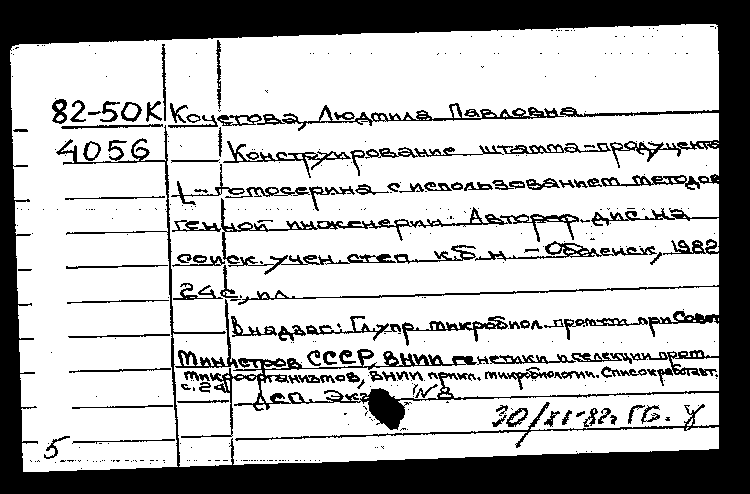 82-50К Кочетова, Людмила Павловна
4056 Конструирование штамма-продуцента
L-гомосерина с использованием методов
генной инженерии: Автореф. дис. на
соиск. учен. степ. к.б.н. - Оболенск, 1982
24 с., ил.
В надзаг: Гл. упр. микробиол. пром-сти при Совет
Министров СССР, ВНИИ генетики и селекции пром.
микроорганизмов, ВНИИ прикл. микробиологии. Список работ авт.
с. 24
Деп. Экз №8
30/XI-82г ГБ. У
5